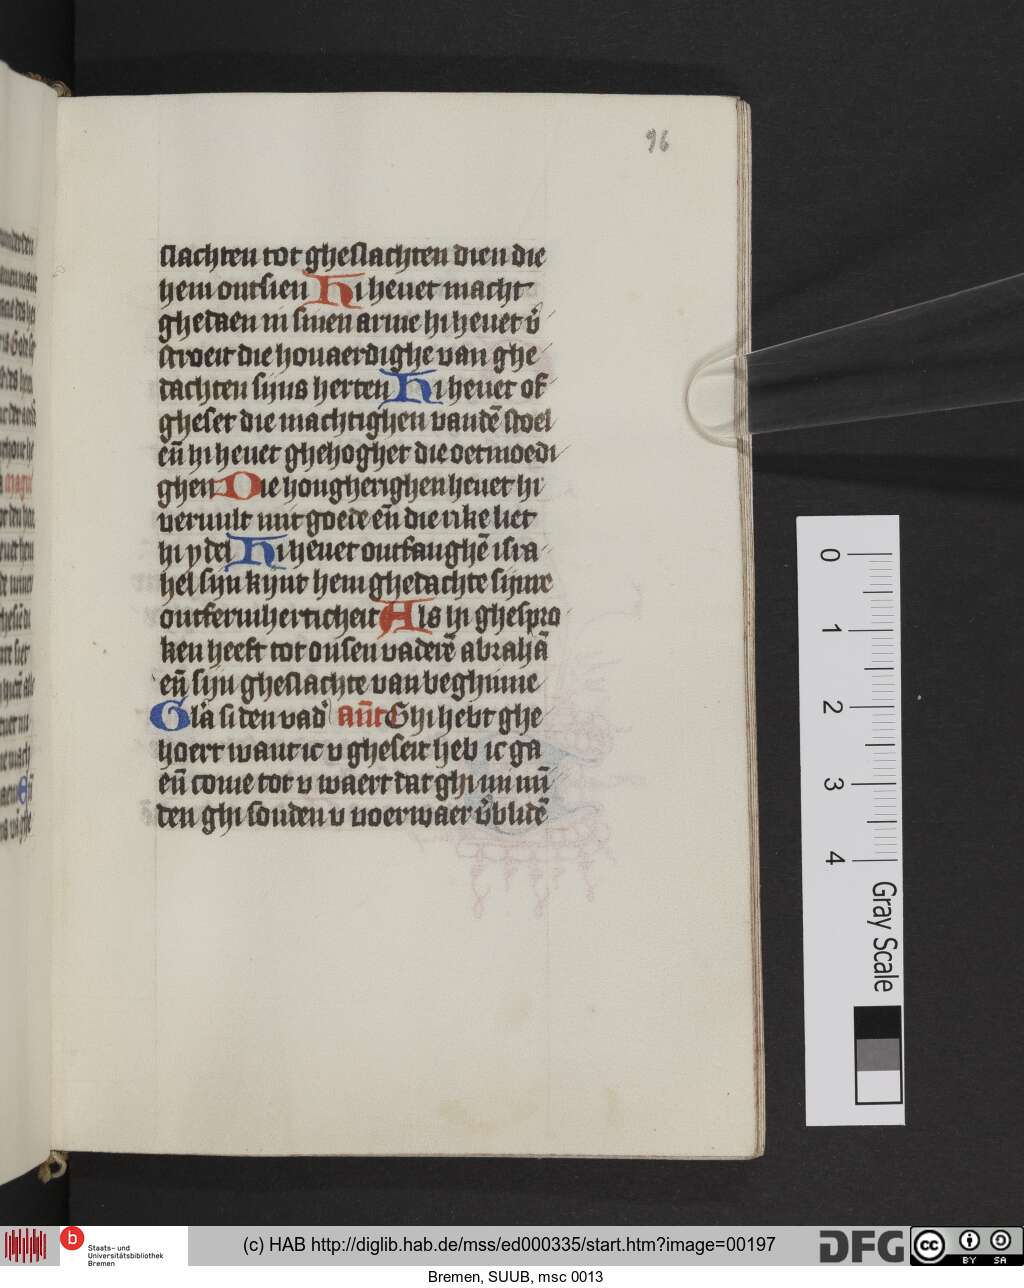 96
slachten tot gheslachten dien die
hem ontsien Hi heuet macht
ghedaen in sinen arme hi heuet v̄
stroeit die houaerdighe van ghe
dachten sijns herten Hi heuet of
gheset die machtighen vandē stoel
eñ hi heuet ghehoghet die oetmoedi
ghen Die hongherighen heuet hi
veruult mit goede eñ die rike liet
hi ydel Hi heuet ontfanghē isra
hel sijn kijnt hem ghedachte sijnre
ontfermherticheit Als hi ghespro
ken heeft tot onsen vaderē abrahā
eñ sijn gheslachte van beghinne
Glā si den vad' an̄t Ghi hebt ghe
hoert want ic v gheseit heb ic ga
eñ come tot v waert dat ghi mi mī
den ghi souden v voerwaer v̄blidē
0
1
2
3
4
Gray Scale
b Staats- und
Universitätsbibliothek
Bremen
(c) HAB http://diglib.hab.de/mss/ed000335/start.htm?image=00197
DFG
cc BY SA
Bremen, SUUB, msc 0013